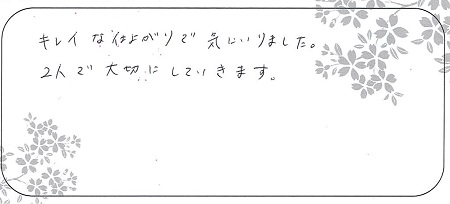 キレイな仕上がりで気にいりました。
2人で大切にしていきます。